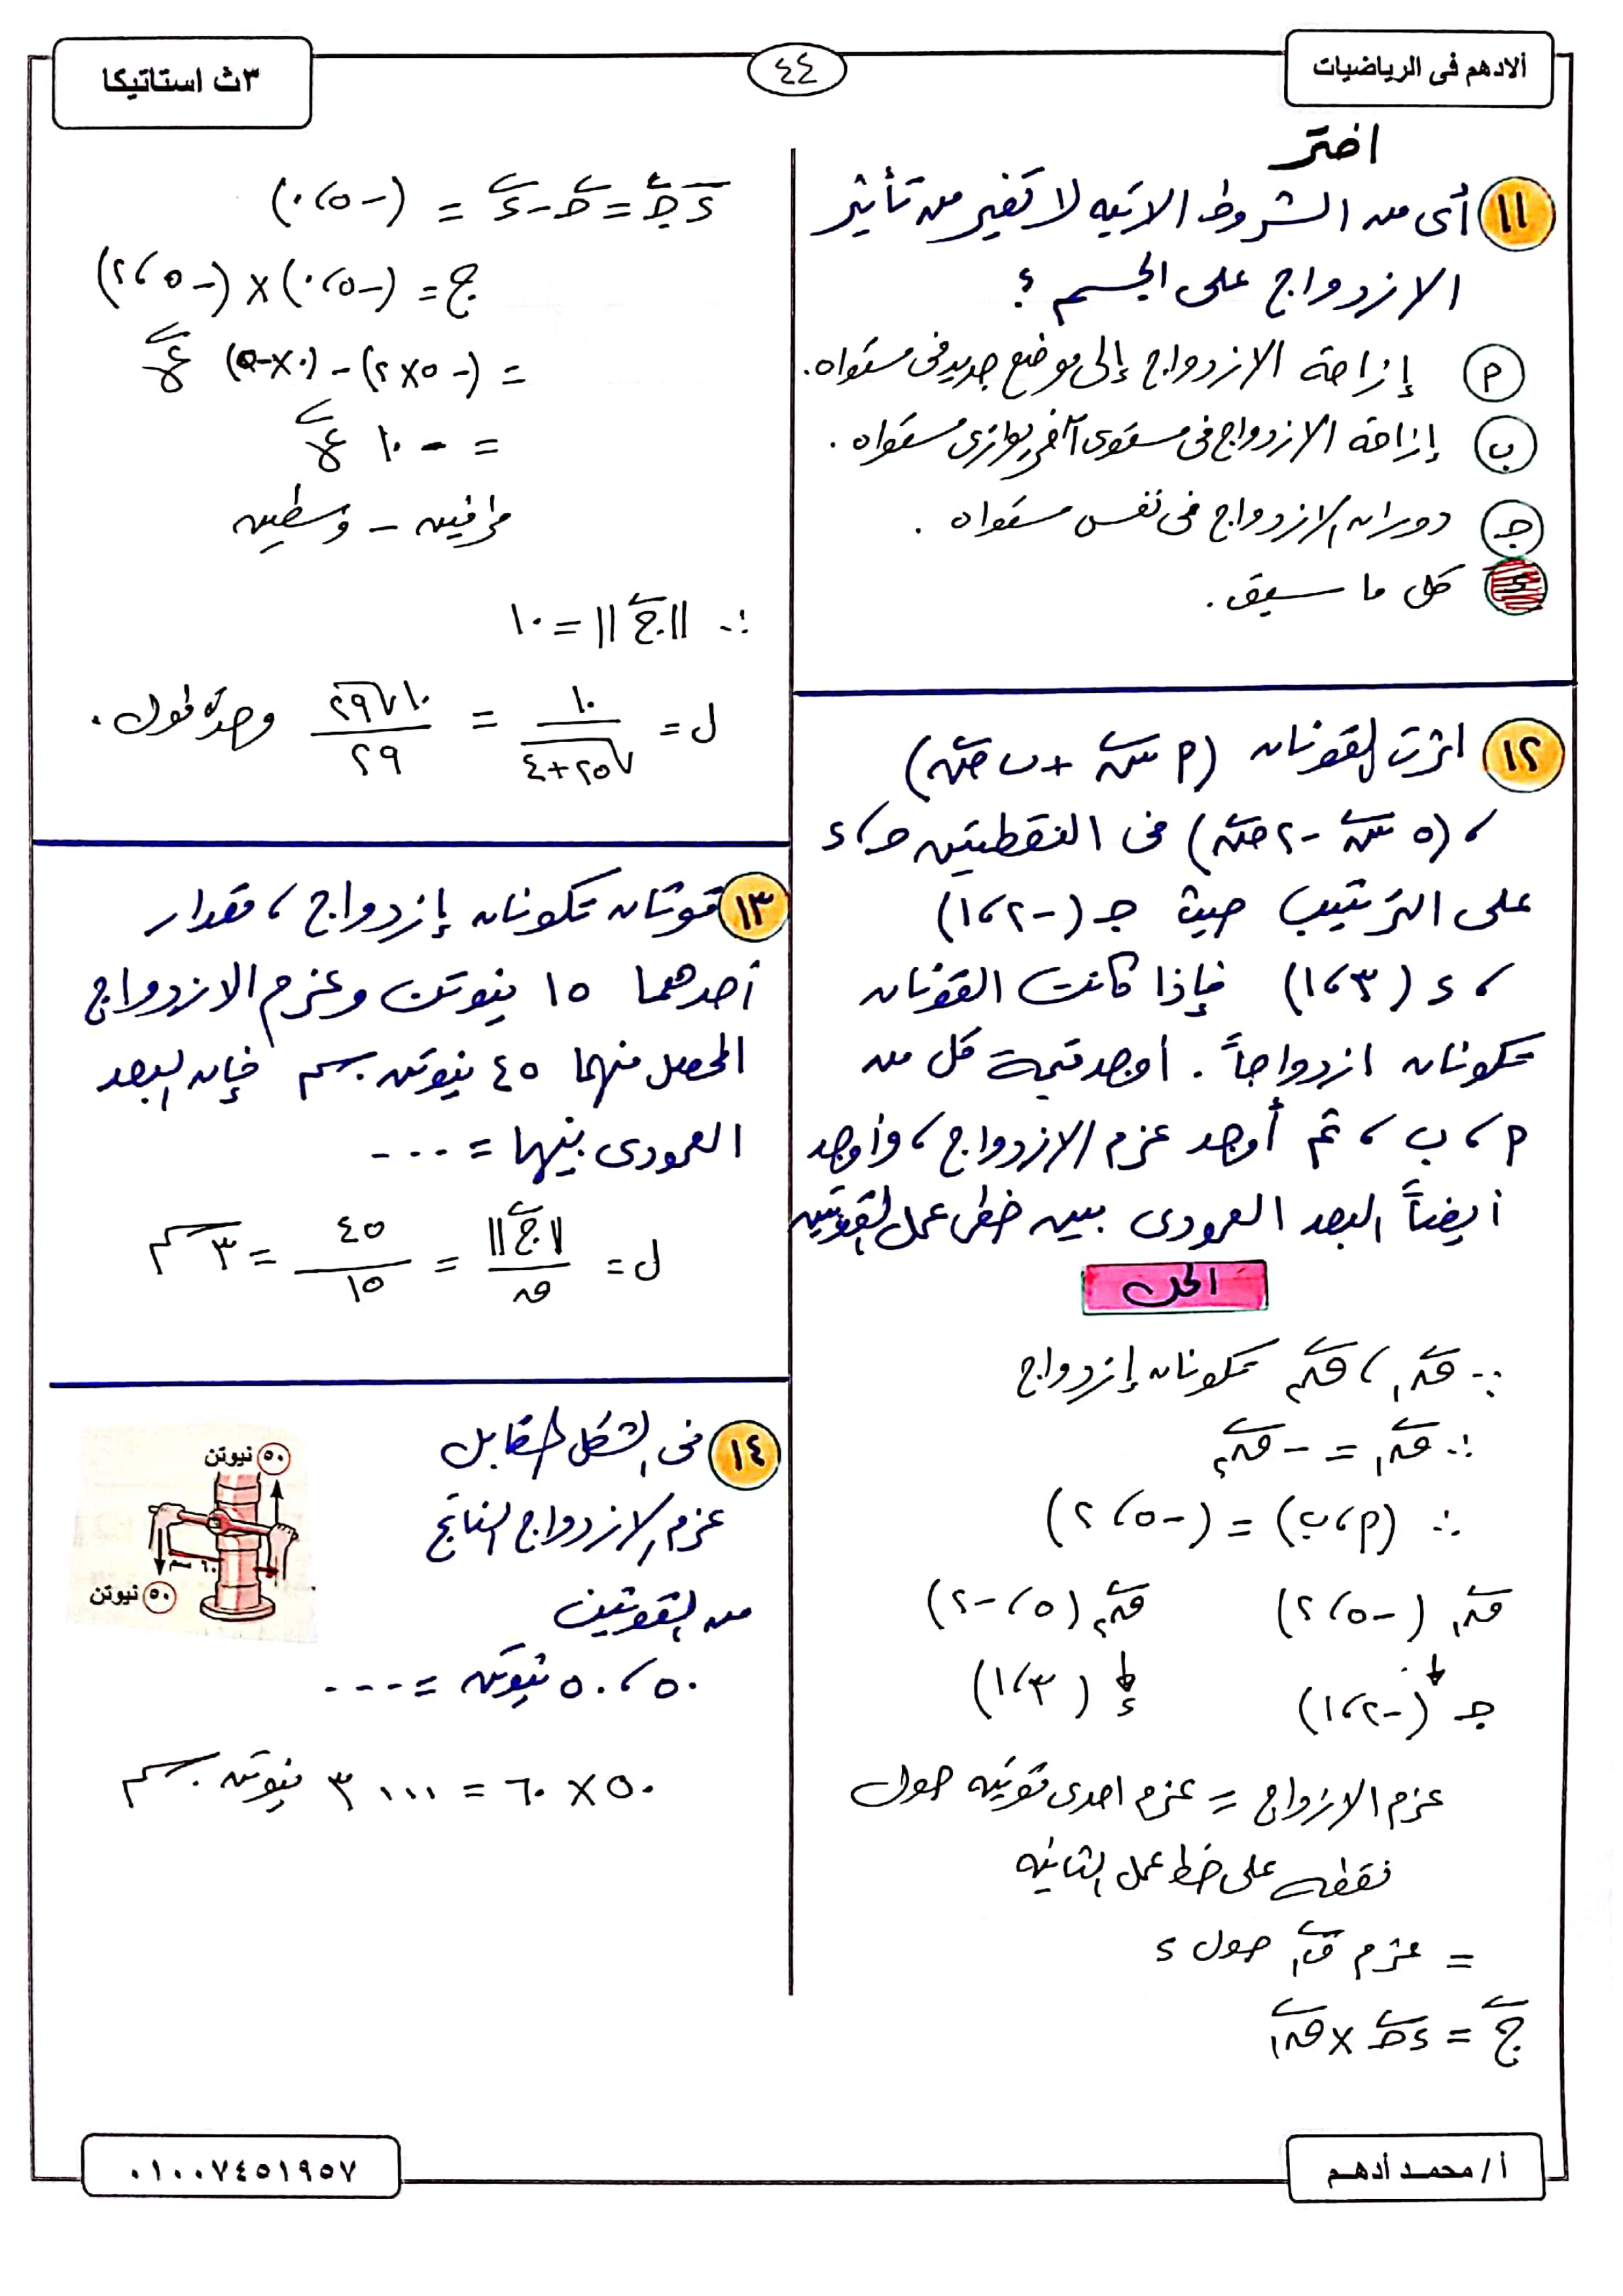 ألادهم فى الرياضيات
٤٤
٣ث استاتيكا
اختر
١١ أى من الشروط الاتيه لا تغير من تأثير
الازدواج على الجسم ؟
أ إزاحة الازدواج إلى موضع جديد فى مستواه.
ب إزاحة الازدواج فى مستوى آخر يوازى مستواه.
جـ دوران الازدواج فى نفس مستواه.
ء كل ما سبق.
١٢ اثرت القوتان (أ سَ + ب صَ)
، (٥ سَ - ٢ صَ) فى النقطتين جـ، ء
على الترتيب حيث جـ (-٢، ١)
، ء (٣، ١) فإذا كانت القوتان
تكونان ازدواجاً. أوجد قيمة كل من
أ، ب، ثم أوجد عزم الازدواج، وأوجد
أيضاً البعد العمودى بين خطى عمل القوتين
الحل
∵ ق١، ق٢ تكونان إزدواج
∴ ق١ = - ق٢
∴ (أ، ب) = (-٥، ٢)
ق١ (-٥، ٢) ق٢ (٥، -٢)
↓ ↓
جـ (-٢، ١) ء (٣، ١)
عزم الازدواج = عزم احدى قوتيه حول
نقطه على خط عمل الثانيه
= عزم ق١ حول ء
ج = ءجـ × ق١
ءجـ = جـ - ء = (-٥، ٠)
ج = (-٥، ٠) × (-٥، ٢)
= (-٥×٢) - (٠×-٥) ع
= -١٠ ع
طرافين - وسطين
∴ ||ج|| = ١٠
ل = ١٠ / √(٢٥+٤) = ١٠√٢٩ / ٢٩ وحدة طول.
١٣ قوتان تكونان إزدواج، مقدار
أحدهما ١٥ نيوتن وعزم الازدواج
المحصل منهما ٤٥ نيوتن.سم فإن البعد
العمودى بينهما = ...
ل = ||ج|| / ق = ٤٥ / ١٥ = ٣ سم
١٤ فى الشكل المقابل
عزم الازدواج الناتج
من القوتين
٥٠، ٥٠ نيوتن = ...
٥٠ نيوتن
٦٠ سم
٥٠ نيوتن
٥٠ × ٦٠ = ٣٠٠٠ نيوتن.سم
أ/ محمـد أدهـم
٠١٠٠٧٤٥١٩٥٧